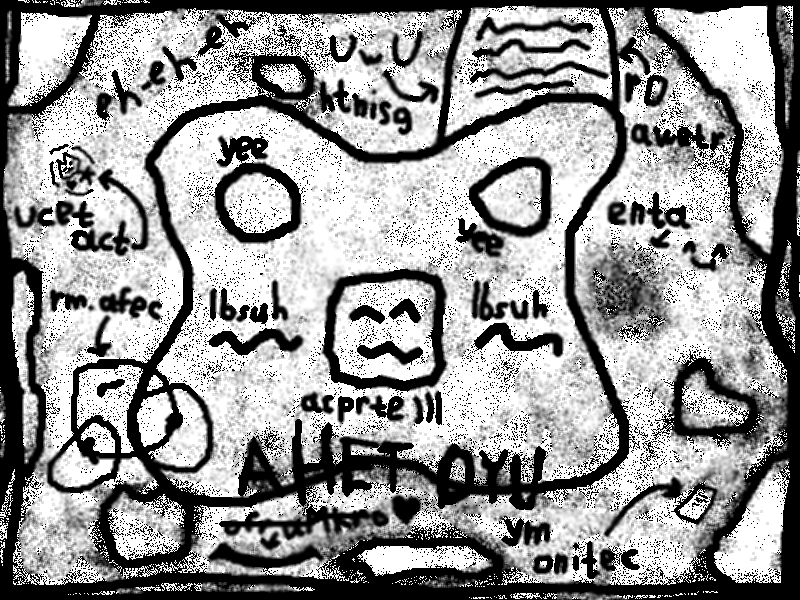 eh-eh-eh
UwU
htnisg
ro
auwtr
yee
yee
ucet
act
enta
rm.afec
lbsuh
lbsuh
acprte )))
AHET OYU
ym
onitec